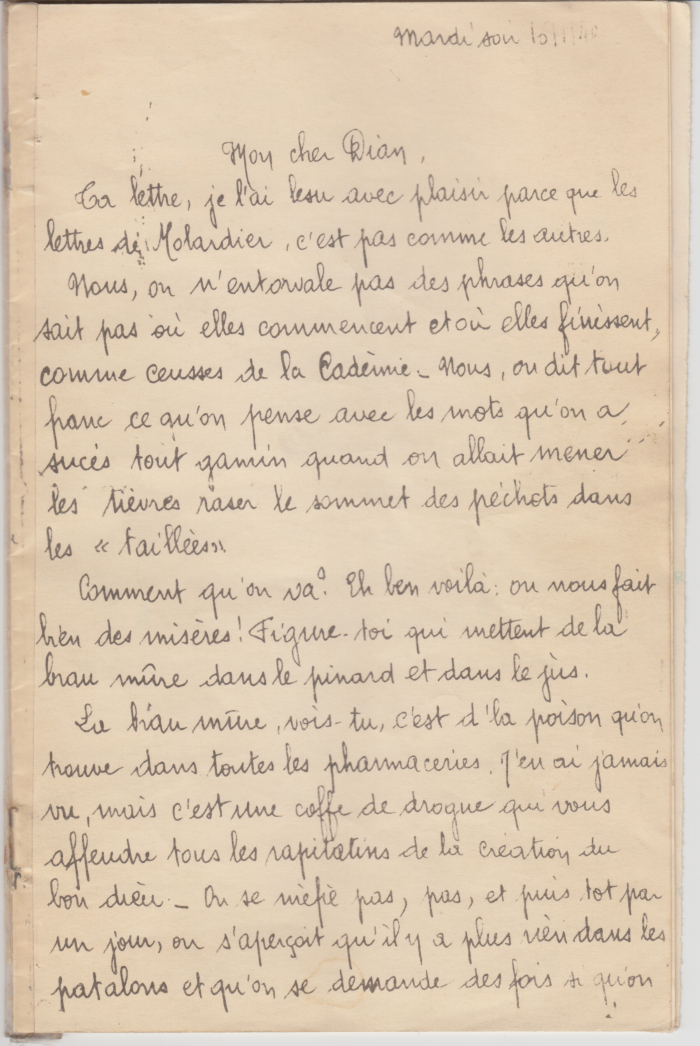 Mardi soir
Mon cher Dian,
Ta lettre, je l'ai lesu avec plaisir parce que les
lettres de Molardier, c'est pas comme les autres.
Nous, on n'entorvale pas des phrases qu'on
sait pas où elles commencent et où elles finissent,
comme ceusses de la Cadémie _ Nous, on dit tout
franc ce qu'on pense avec les mots qu'on a
sucés tout gamin quand on allait mener
les tièvres raser le sommet des péchots dans
les « taillées »
Comment qu'on va? Eh ben voilà: on nous fait
bien des misères! Figure-toi qui mettent de la
brau mûre dans le pinard et dans le jus.
La brau mûre, vois-tu, c'est d'la poison qu'on
trouve dans toutes les pharmaceries. J'en ai jamais
vu, mais c'est une coffe de drogue qui vous
affendre tous les rapitatins de la création du
bon dieu. _ On se méfie pas, pas, et puis tot par
un jour, on s'aperçoit qu'il y a plus rien dans les
patalons et qu'on se demande des fois si qu'on